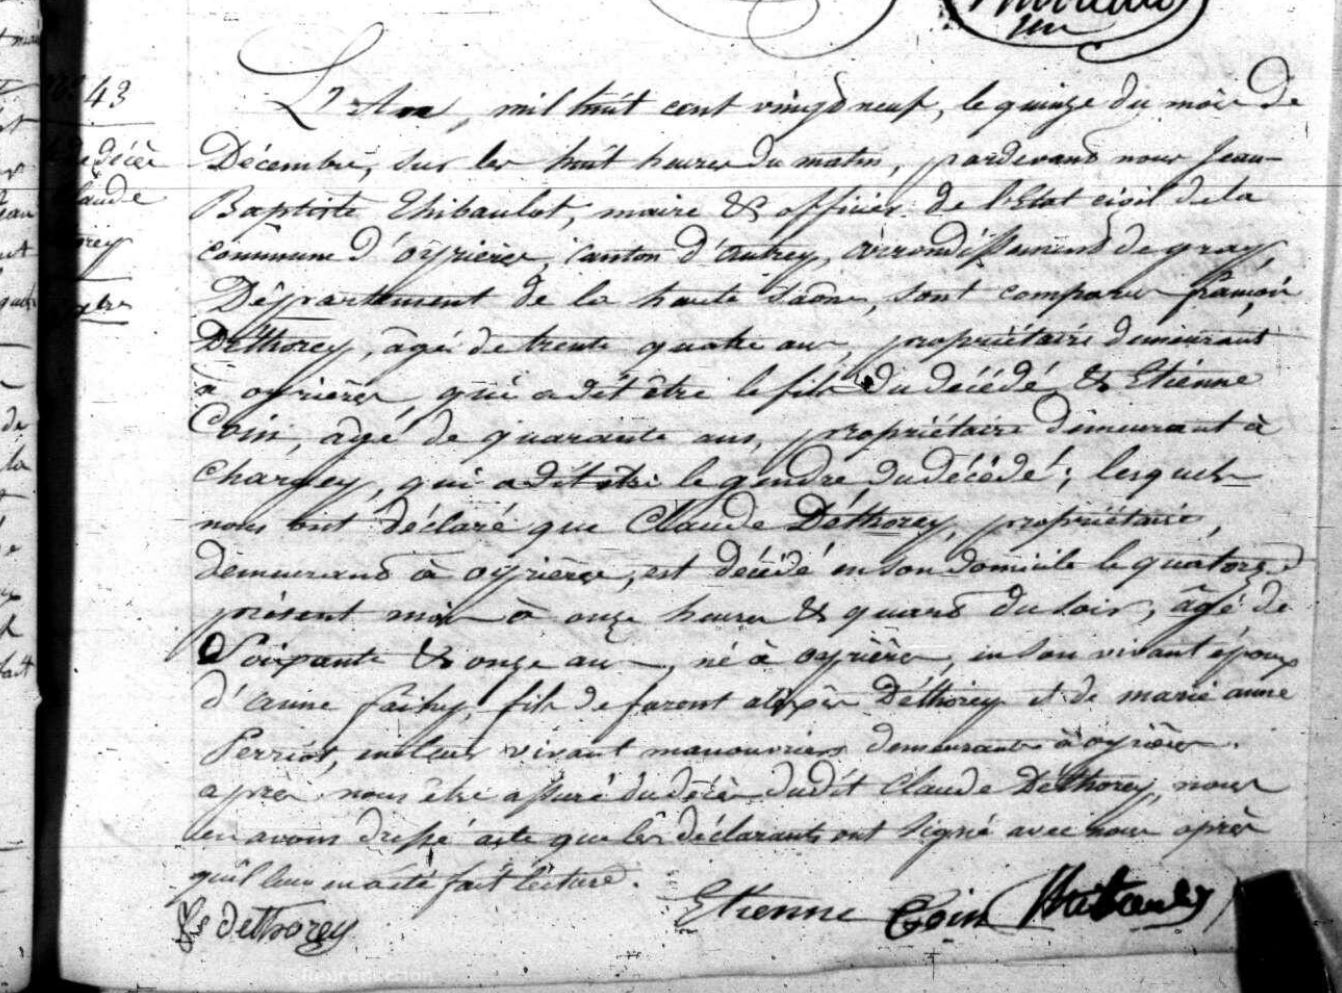 43
L'An, mil huit cent vingt neuf, le quinze du mois de
décès
Décembre, sur les huit heures du matin, pardevant nous Jean-
Claude
Baptiste Thibaulot, maire & officier de l'Etat civil de la
commune d'oyrières, canton d'autrey, arrondissement de gray,
Département de la haute Saône, sont comparus
Déthorey, âgé de trente quatre ans, propriétaire demeurant
à oyrières, qui a dit être le fils du décédé, & Etienne
Coin, âgé de quarante ans, propriétaire demeurant à
chargey, qui a dit être le gendre du décédé; lesquels
nous ont déclaré que Claude Déthorey, propriétaire,
demeurant à oyrières, est décédé en son domicile le quatorze
présent mois à onze heures & quard du soir, âgé de
Soixante & onze ans, né à oyrières, en son vivant époux
d'anne faitry, fils de Déthorey et de marie anne
Perriot, en leur vivant manouvriers demeurants à oyrières.
après nous être assuré du décès dudit Claude Déthorey, nous
en avons dressé acte que les déclarants ont signé avec nous après
qu'il leur en a été fait lecture.
dethorey Etienne Coin Thibaulot